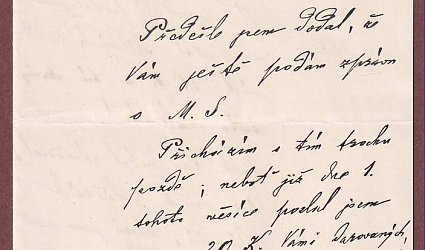 Předešle jsem dodal, že
Vám ještě podám zprávu
o M. S.
Přicházím s tím trochu
pozdě; neboť již dne 1.
tohoto měsíce poslal jsem
20 K. Vámi darovaných,